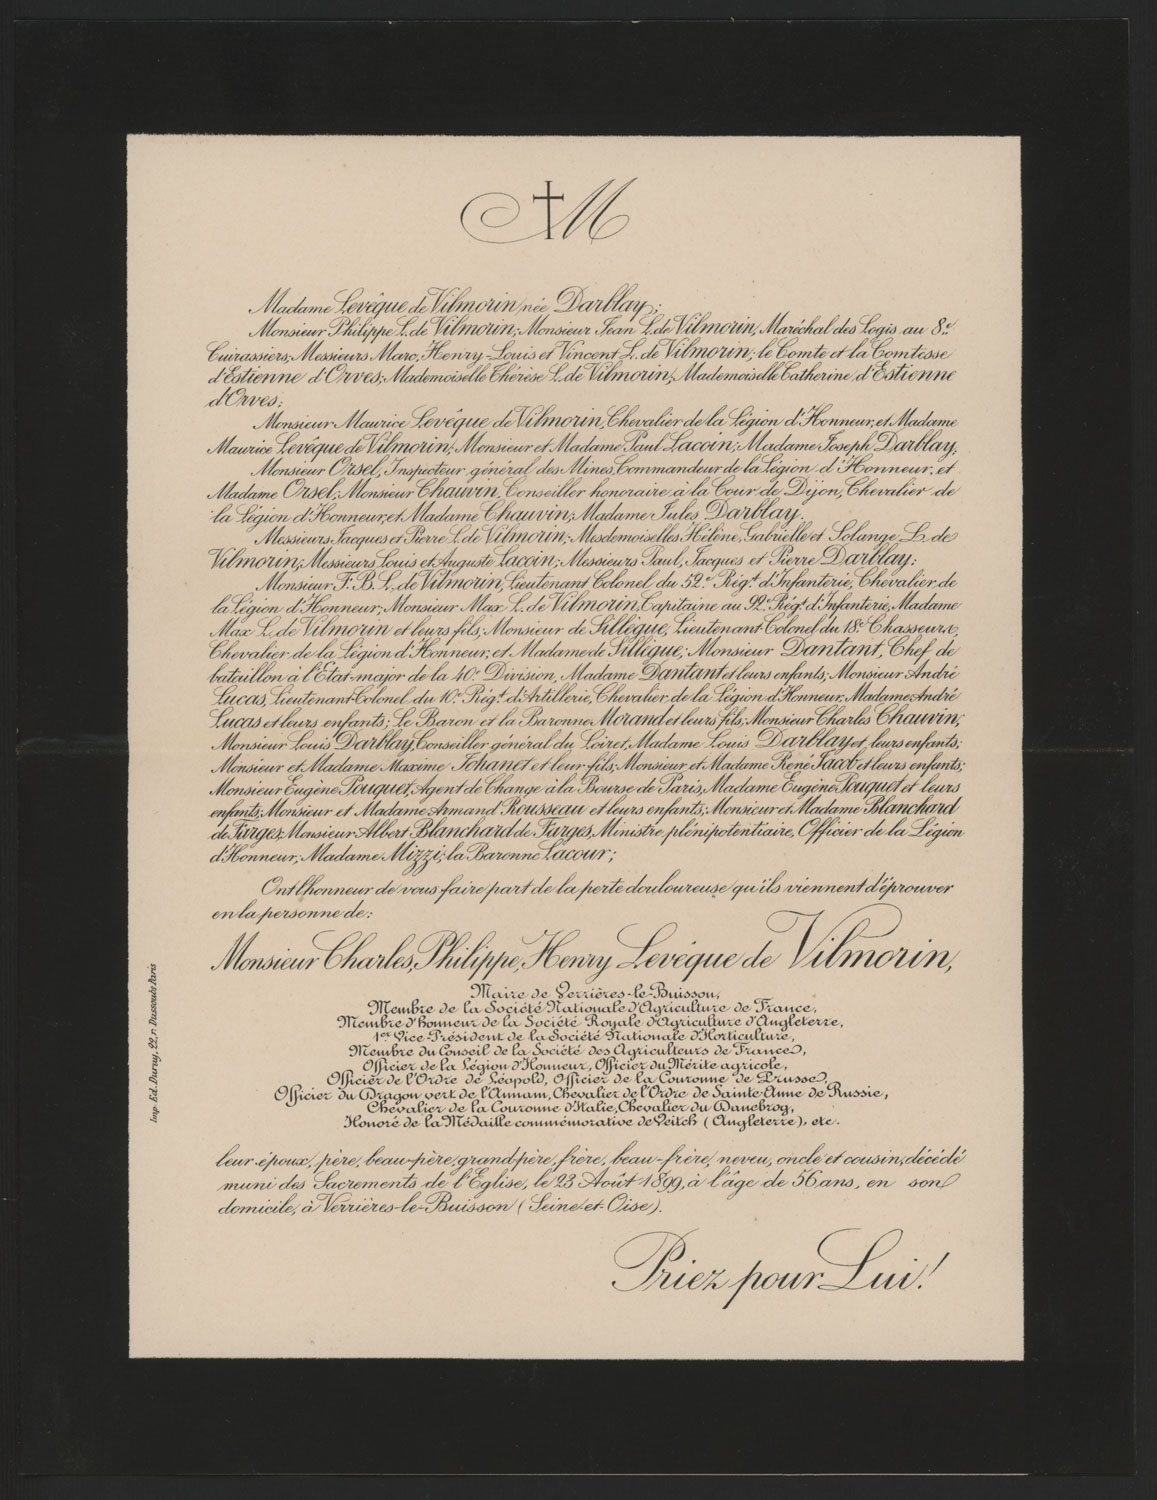 M
Madame Levêque de Vilmorin née Darblay;
Monsieur Philippe L. de Vilmorin; Monsieur Jean L. de Vilmorin, Maréchal des Logis au 8e
Cuirassiers; Messieurs Marc, Henry-Louis et Vincent L. de Vilmorin; le Comte et la Comtesse
d'Estienne d'Orves; Mademoiselle Thérèse L. de Vilmorin; Mademoiselle Catherine d'Estienne
d'Orves;
Monsieur Maurice Levêque de Vilmorin, Chevalier de la Légion d'Honneur, et Madame
Maurice Levêque de Vilmorin; Monsieur et Madame Paul Lacoin; Madame Joseph Darblay;
Monsieur Orsel, Inspecteur général des Mines, Commandeur de la Légion d'Honneur, et
Madame Orsel; Monsieur Chauvin, Conseiller honoraire à la Cour de Dijon, Chevalier de
la Légion d'Honneur, et Madame Chauvin; Madame Jules Darblay.
Messieurs Jacques et Pierre L. de Vilmorin; Mesdemoiselles Hélène, Gabrielle et Solange L. de
Vilmorin; Messieurs Louis et Auguste Lacoin; Messieurs Paul, Jacques et Pierre Darblay;
Monsieur F. B. L. de Vilmorin, Lieutenant Colonel du 52e Régt d'Infanterie, Chevalier de
la Légion d'Honneur; Monsieur Max L. de Vilmorin, Capitaine au 92e Régt d'Infanterie, Madame
Max L. de Vilmorin et leurs fils; Monsieur de Sillègue, Lieutenant-Colonel du 18e Chasseurs,
Chevalier de la Légion d'Honneur, et Madame de Sillègue; Monsieur Dantant, Chef de
bataillon à l'Etat-major de la 40e Division, Madame Dantant et leurs enfants; Monsieur André
Lucas, Lieutenant-Colonel du 10e Régt d'Artillerie, Chevalier de la Légion d'Honneur, Madame André
Lucas et leurs enfants; Le Baron et la Baronne Morand et leurs fils; Monsieur Charles Chauvin;
Monsieur Louis Darblay, Conseiller général du Loiret, Madame Louis Darblay et leurs enfants;
Monsieur et Madame Maxime Johanet et leur fils; Monsieur et Madame René Jacob et leurs enfants;
Monsieur Eugène Pouquet, Agent de Change à la Bourse de Paris, Madame Eugène Pouquet et leurs
enfants; Monsieur et Madame Armand Rousseau et leurs enfants; Monsieur et Madame Blanchard
de Farges; Monsieur Albert Blanchard de Farges, Ministre plénipotentiaire, Officier de la Légion
d'Honneur; Madame Mizzi; la Baronne Lacour;
Ont l'honneur de vous faire part de la perte douloureuse qu'ils viennent d'éprouver
en la personne de:
Monsieur Charles, Philippe, Henry Levêque de Vilmorin,
Maire de Verrières-le-Buisson,
Membre de la Société Nationale d'Agriculture de France,
Membre d'honneur de la Société Royale d'Agriculture d'Angleterre,
1er Vice-Président de la Société Nationale d'Horticulture,
Membre du Conseil de la Société des Agriculteurs de France,
Officier de la Légion d'Honneur, Officier du Mérite agricole,
Officier de l'Ordre de Léopold, Officier de la Couronne de Prusse,
Officier du Dragon vert de l'Annam, Chevalier de l'Ordre de Sainte-Anne de Russie,
Chevalier de la Couronne d'Italie, Chevalier du Danebrog,
Honoré de la Médaille commémorative de Veitch (Angleterre), etc.
leur époux, père, beau-père, grand-père, frère, beau-frère, neveu, oncle et cousin, décédé
muni des Sacrements de l'Eglise, le 23 Août 1899, à l'âge de 56 ans, en son
domicile, à Verrières-le-Buisson (Seine-et-Oise).
Priez pour Lui!
Imp. Ed. Duruy, 22, r. Dussoubs Paris